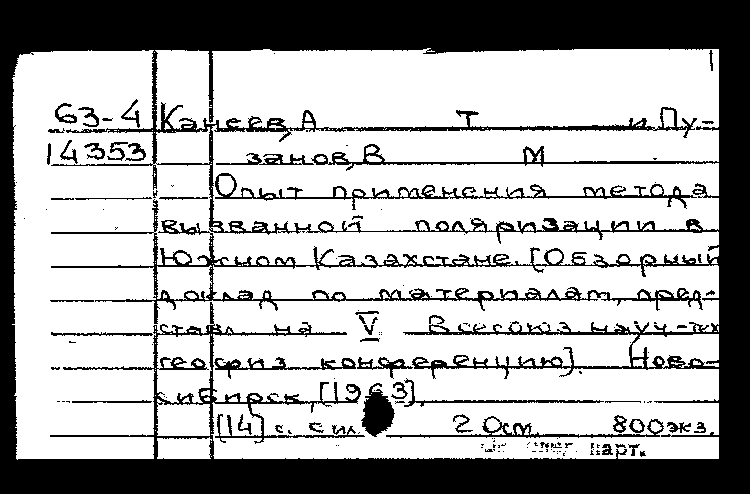 63-4 Канеев, А Т и Пу-
14353 занов, В М
Опыт применения метода
вызванной поляризации в
Южном Казахстане. [Обзорный
доклад по материалам, пред-
ставл на V Всесоюз науч-тех
геофиз конференцию]. Ново-
сибирск, [1963].
[14] с. с ил 20см. 800экз.
карт.